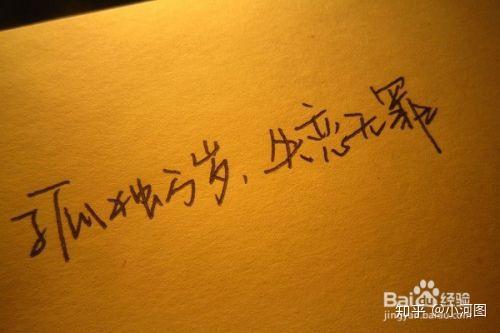 孤独万岁、失恋无罪
Baidu经验
jingyan.baidu.com
知乎 @小河图